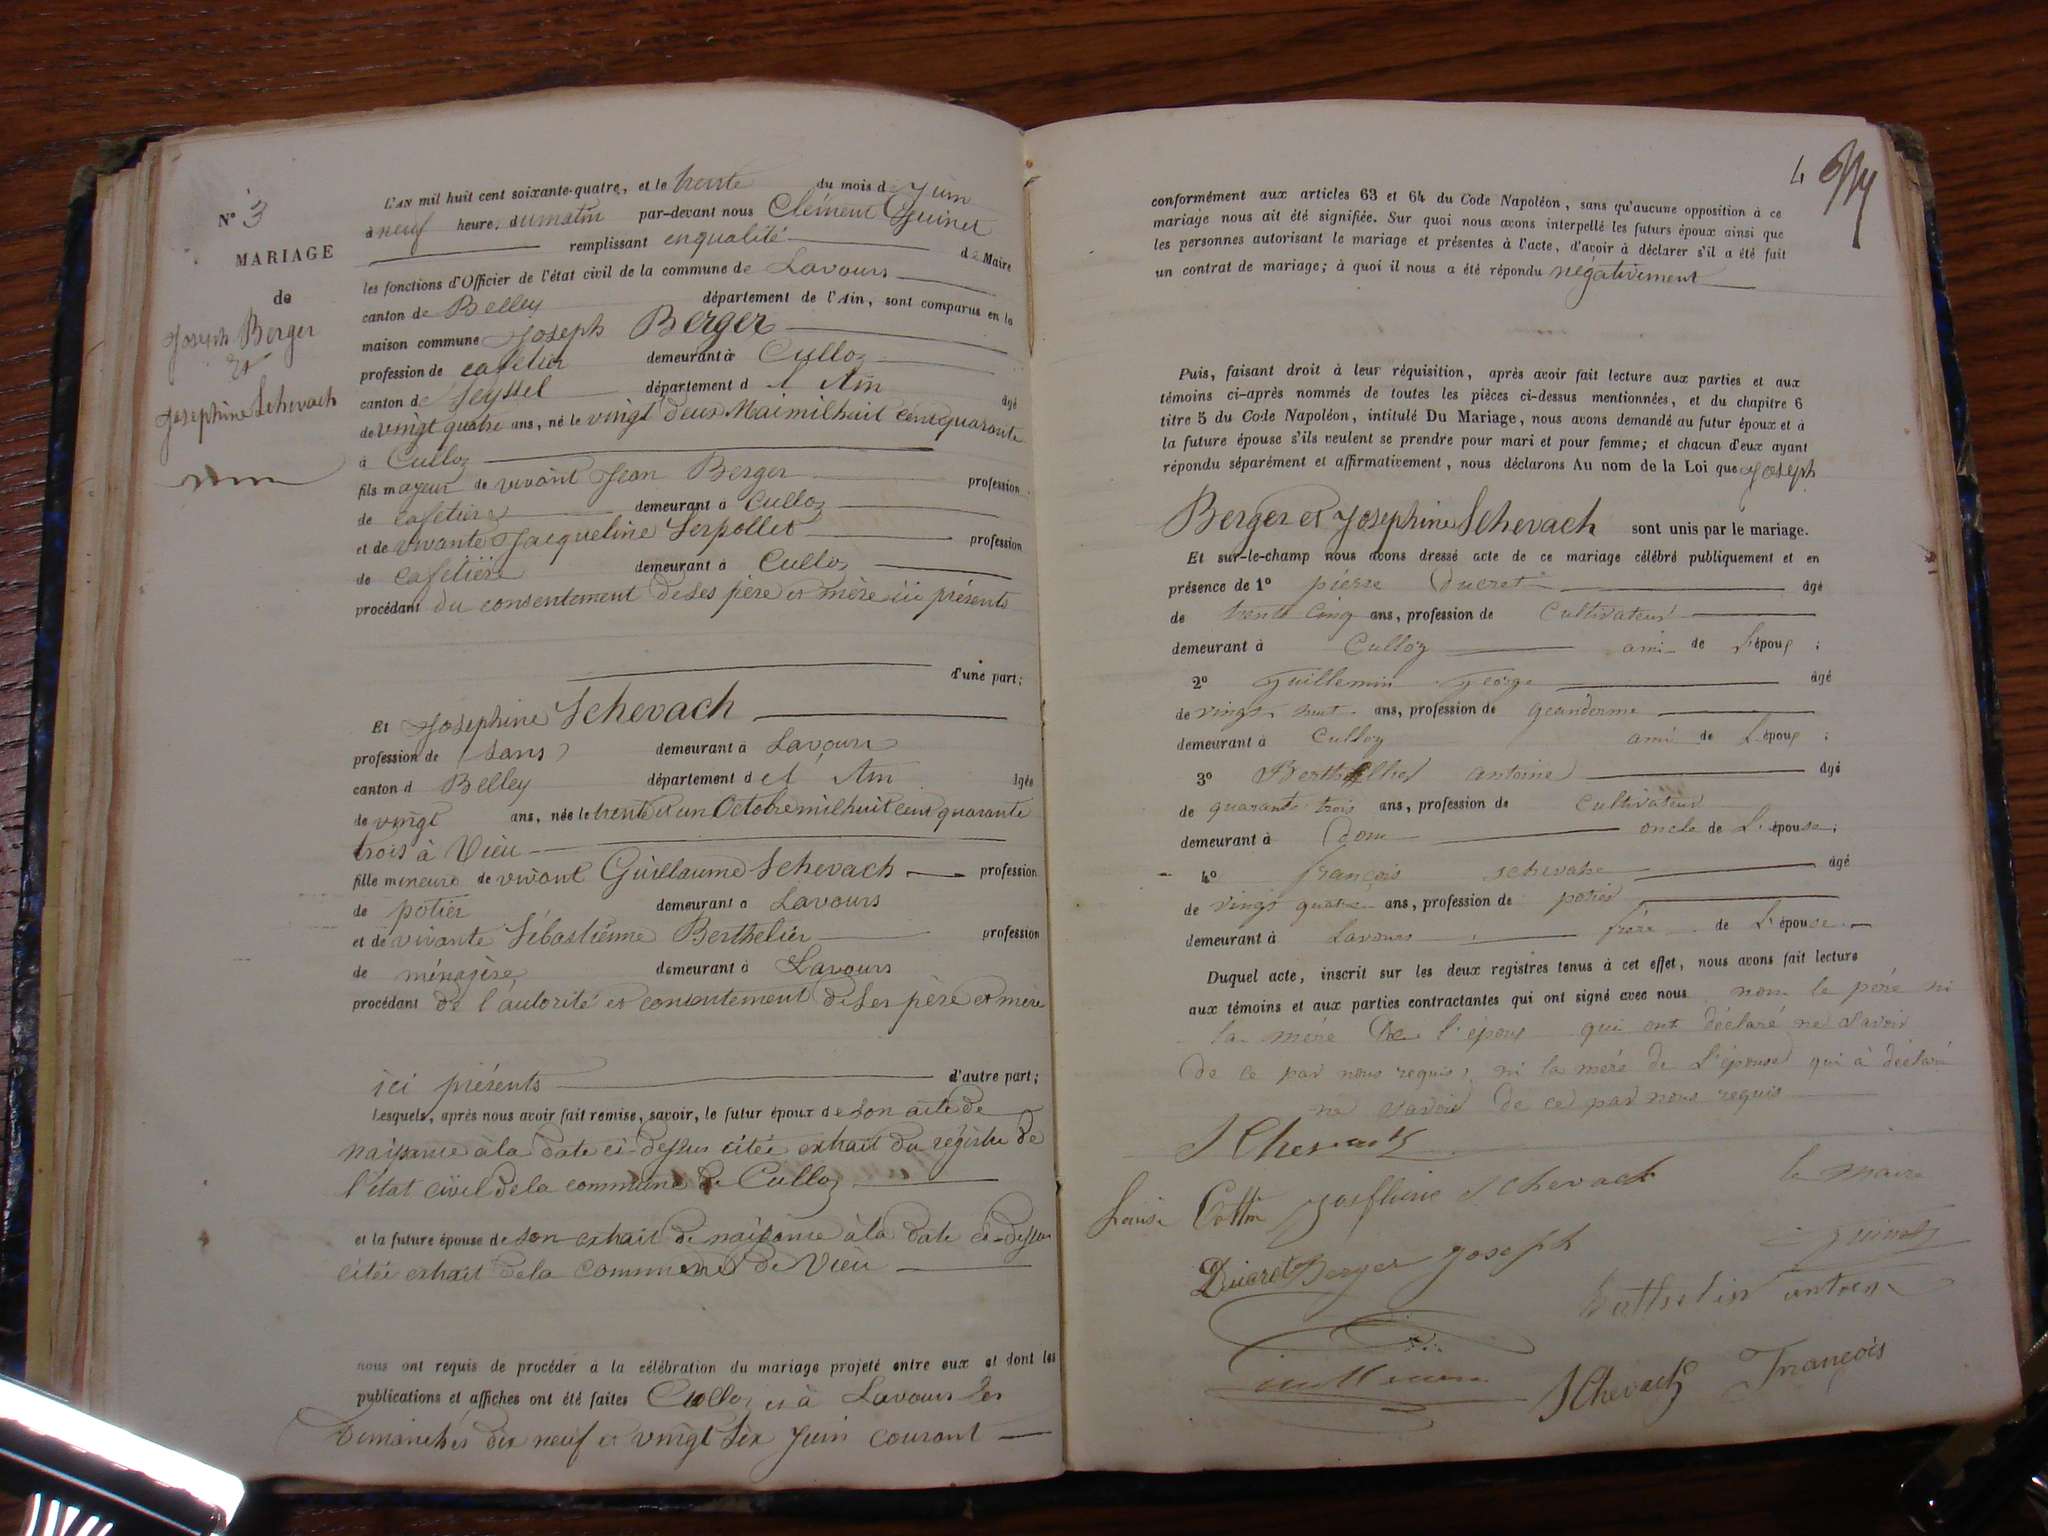 N° 3
MARIAGE
de
Joseph Berger
et
Josephine Schevach
L'AN mil huit cent soixante-quatre, et le trente du mois de Juin
à neuf heure, du matin par-devant nous Clément Guinet
remplissant en qualité de Maire
les fonctions d'Officier de l'état civil de la commune de Lavours
canton de Belley département de l'Ain, sont comparus en la
maison commune Joseph Berger
profession de cafetier demeurant à Culloz
canton de Seyssel département de l'Ain âgé
de vingt quatre ans, né le vingt deux Mai mil huit cent quarante
à Culloz
fils mayeur de vivant Jean Berger profession
de cafetier demeurant à Culloz
et de vivante Jacqueline Serpollet profession
de cafetière demeurant à Culloz
procédant du consentement de ses père et mère ici présents
d'une part;
Et Josephine Schevach
profession de (sans) demeurant à Lavours
canton de Belley département de l'Ain âgée
de vingt ans, née le trente et un Octobre mil huit cent quarante
trois à Vieu
fille mineure de vivant Guillaume Schevach profession
de potier demeurant à Lavours
et de vivante Sébastienne Berthelier profession
de ménagère demeurant à Lavours
procédant de l'autorité et consentement de ses père et mère
ici présents d'autre part;
Lesquels, après nous avoir fait remise, savoir, le futur époux de son acte de
naissance à la date ci-dessus citée extrait du régistre de
l'état civil de la commune de Culloz
et la future épouse de son extrait de naissance à la date ci-dessus
citée extrait de la commune de Vieu
nous ont requis de procéder à la célébration du mariage projeté entre eux et dont les
publications et affiches ont été faites Culloz et à Lavours les
Dimanches dix neuf et vingt six Juin courant
4
conformément aux articles 63 et 64 du Code Napoléon, sans qu'aucune opposition à ce
mariage nous ait été signifiée. Sur quoi nous avons interpellé les futurs époux ainsi que
les personnes autorisant le mariage et présentes à l'acte, d'avoir à déclarer s'il a été fait
un contrat de mariage; à quoi il nous a été répondu négativement
Puis, faisant droit à leur réquisition, après avoir fait lecture aux parties et aux
témoins ci-après nommés de toutes les pièces ci-dessus mentionnées, et du chapitre 6
titre 5 du Code Napoléon, intitulé Du Mariage, nous avons demandé au futur époux et à
la future épouse s'ils veulent se prendre pour mari et pour femme; et chacun d'eux ayant
répondu séparément et affirmativement, nous déclarons Au nom de la Loi que Joseph
Berger et Josephine Schevach sont unis par le mariage.
Et sur-le-champ nous avons dressé acte de ce mariage célébré publiquement et en
présence de 1° pierre Ducret âgé
de trente cinq ans, profession de Cultivateur
demeurant à Culloz ami de l'époux ;
2° Guillemin George âgé
de vingt huit ans, profession de geanderme
demeurant à Culloz ami de l'époux ;
3° Berthellier antoine âgé
de quarante trois ans, profession de Cultivateur
demeurant à Don oncle de l'épouse;
4° françois schevahe âgé
de vingt quatre ans, profession de potier
demeurant à Lavours frère de l'épouse
Duquel acte, inscrit sur les deux registres tenus à cet effet, nous avons fait lecture
aux témoins et aux parties contractantes qui ont signé avec nous non le père ni
la mère de l'époux qui ont déclaré ne savoir
de ce par nous requis, ni la mère de l'épouse qui à déclaré
ne savoir de ce par nous requis
Louise Cottin Josephine Schevach le Maire
Ducret Berger Joseph Guinet
berthelier antoine
Guillemin Schevach François